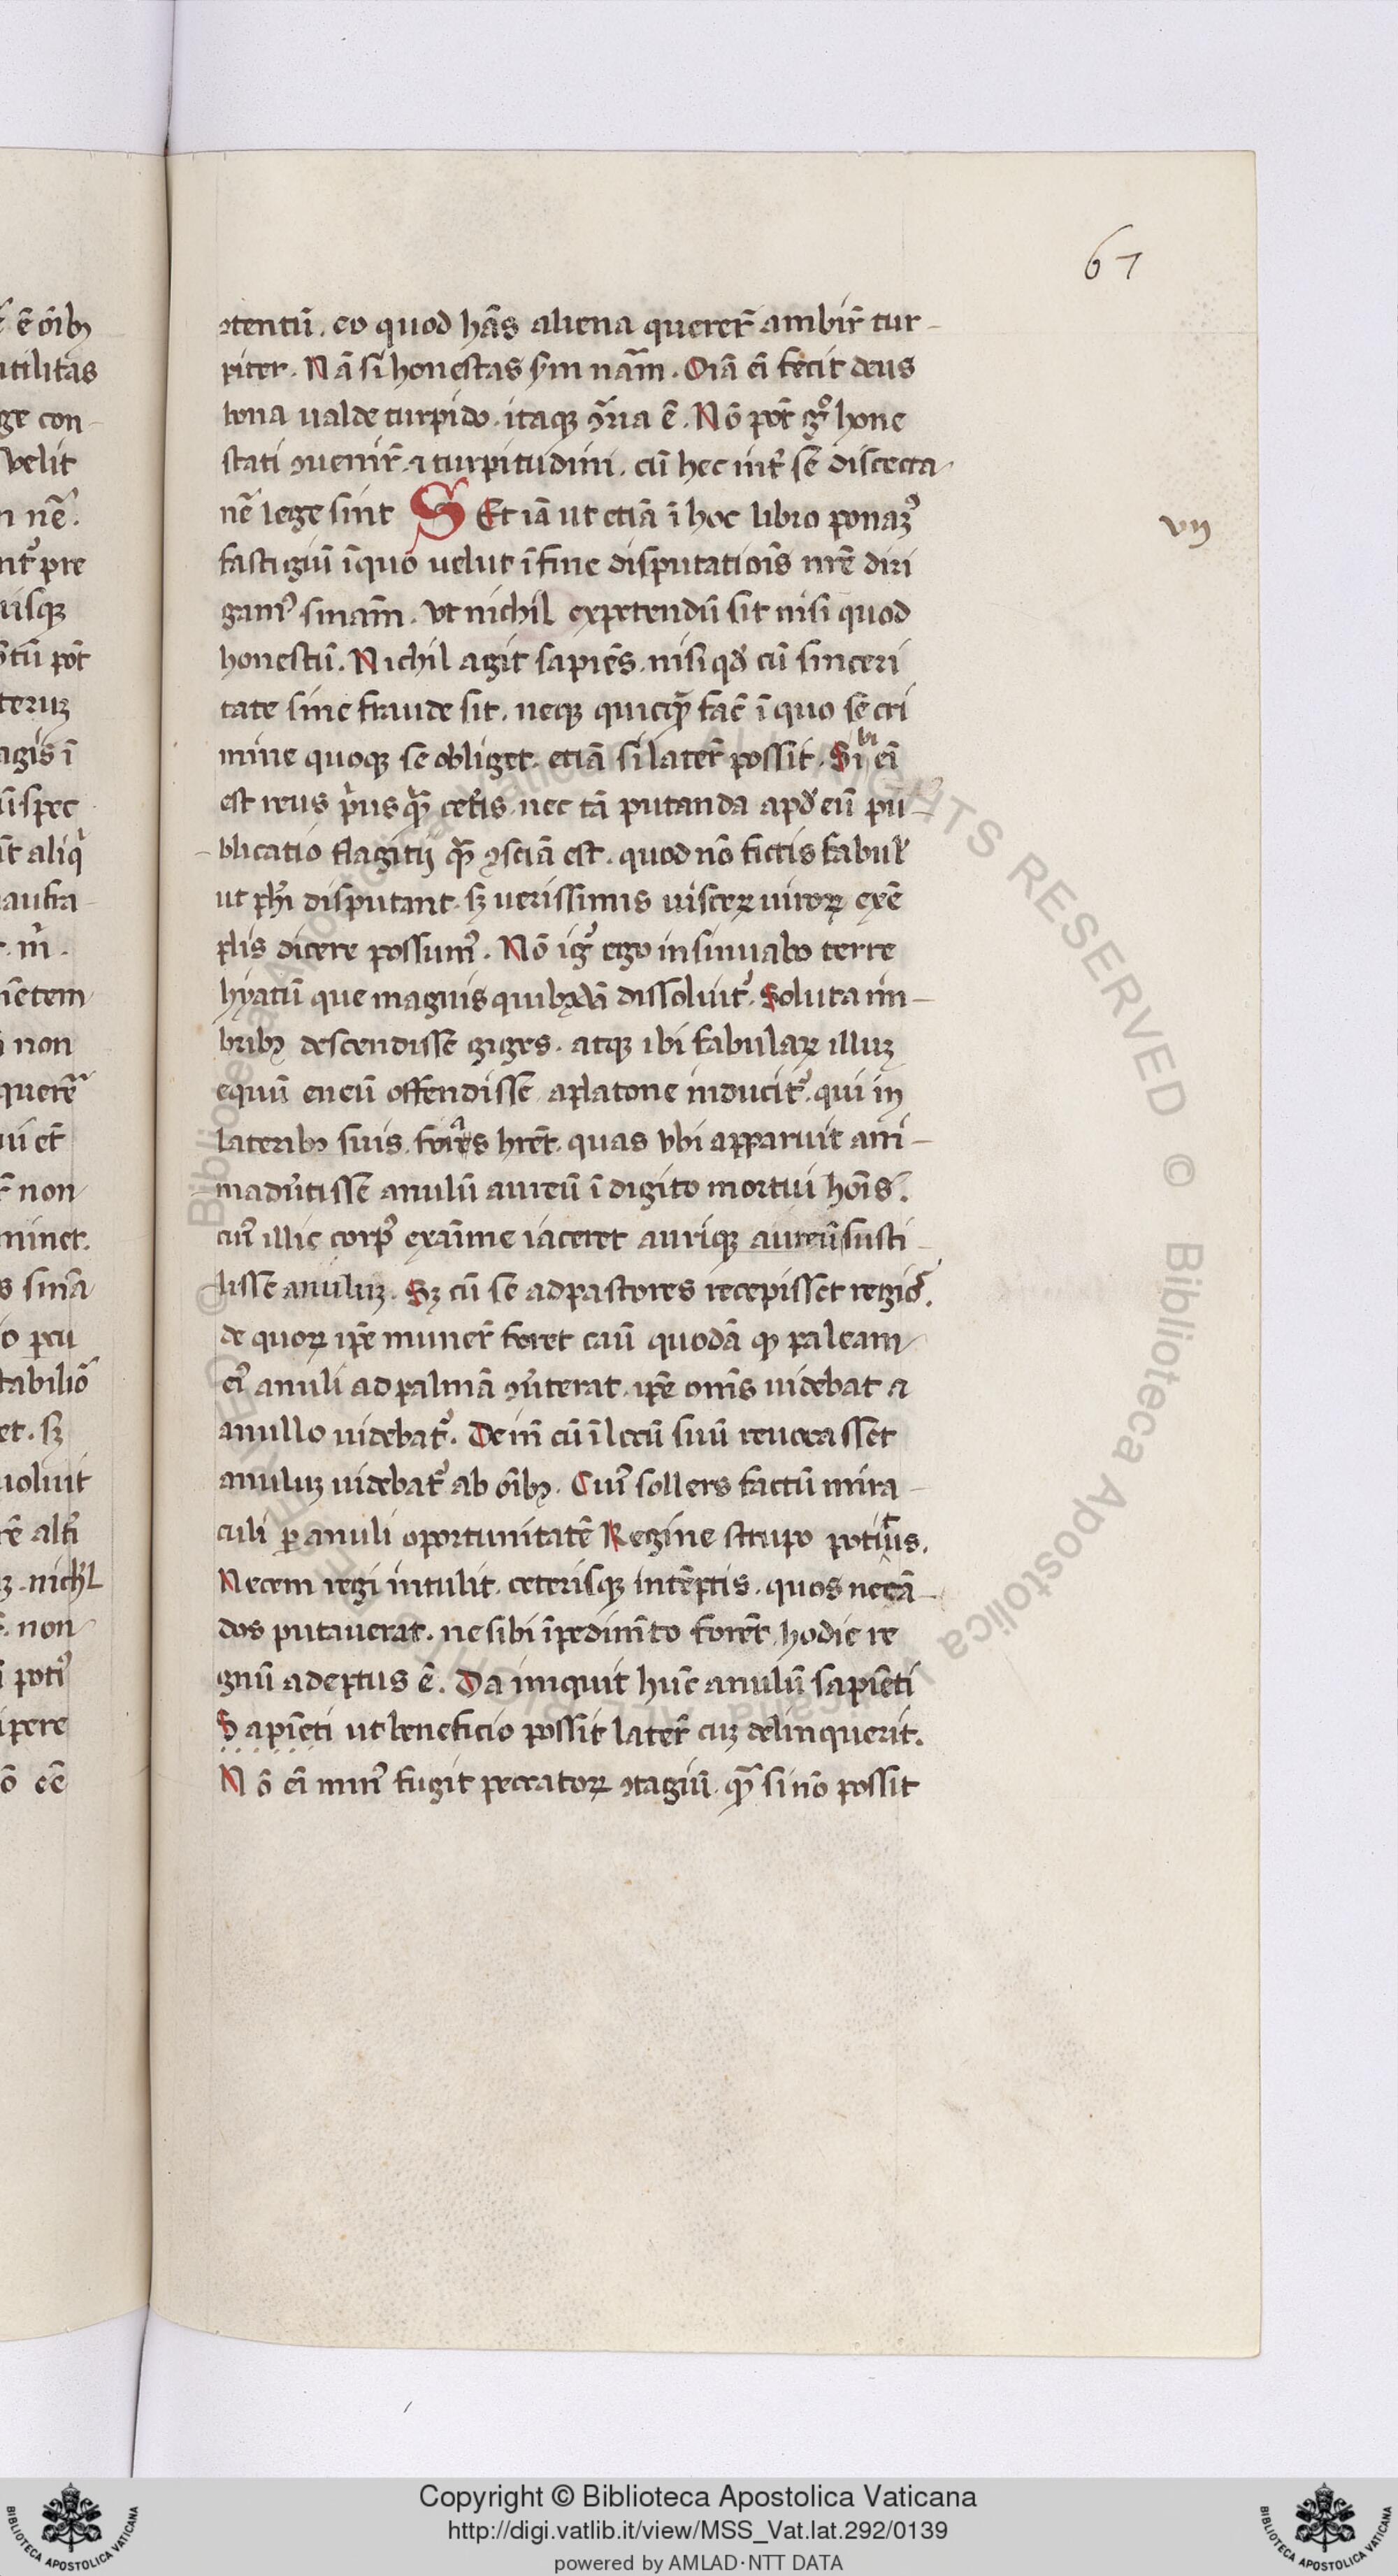 67
ꝯtentū. eo quod hās aliena querer̄ ambir̄ tur-
piter. Nā si honestas ẜm nām. Oīa eī fecit deus
bona ualde turpido. itaqꝫ ꝯ̄ria ē. Nō pōt gͦ hone
stati ꝯuenir̄ ⁊ turpitudini. cū hec int̄ sē discreta
nē lege sint SEt iā ut etiā ī hoc libro ponaꝫꝰ
vij
fastigiū īquo uelut ī fine disputatiōis nrē diri
gamꝰ sn̄iam. vt nichil expetendū sit nisi quod
honestū. Nichil agit sapiēs. nisi qd̄ cū sinceri
tate sine fraude sit. neqꝫ quicq̄ fac̄ ī quo se cri
mine quoqꝫ se obliget. etiā si later̄ possit. Sibi eī
est reus p̄us qꝫ̄ cet̄is. nec tā putanda apd̄ eū pu-
blicatio flagitij qꝫ̄ ꝯsciā est. quod nō fictis fabul̄
ut ph̄i disputant. sꝫ uerissimis uiscerꝝ uirorꝝ exē
plis dicere possumꝰ. Nō igr̄ ego insinuabo terre
hyatū que magnis quibꝰdā dissoluit᷑. Soluta im-
bribꝫ descendisse giges. atqꝫ ibi fabularꝝ illuꝫ
equū eneū offendisse aplatone inducit᷑. qui in
lateribꝫ suis. fores hr̄et. quas vbi apparuit ani-
madūtisse anulū aureū ī digito mortui hoīs.
cuiꝰ illic corpꝰ exaīme iaceret aurique aureū susti-
lisse anuluꝫ. Sꝫ cū se adpastores recepisset regio᷑.
de quorꝝ ipe muner̄ foret caū quodā qꝫ paleam
eiꝰ anuli ad palmā ꝯūterat. ipe om̄s uidebat a
nullo uidebat᷑. Dein̄ cū ī locū suū reuocasset
anuluꝫ uidebat᷑ ab oībꝫ. Cuiꝰ sollers factū mira-
culi ꝑ anuli oportunitatē Regine strupo potitus.
Necem regi intulit. ceterisqꝫ intēptis. quos necā-
dos putauerat. ne sibi īpedimēto forēt. hodie re
gnū adeptus ē. Da inquit hūc anulū sapiēti
Sapiēti ut beneficio possit later̄ cuꝫ delinquerit.
Nō eī minꝰ fugit peccatorꝝ ꝯtagiū. qꝫ̄ si nō possit
Copyright © Biblioteca Apostolica Vaticana
http://digi.vatlib.it/view/MSS_Vat.lat.292/0139
powered by AMLAD·NTT DATA